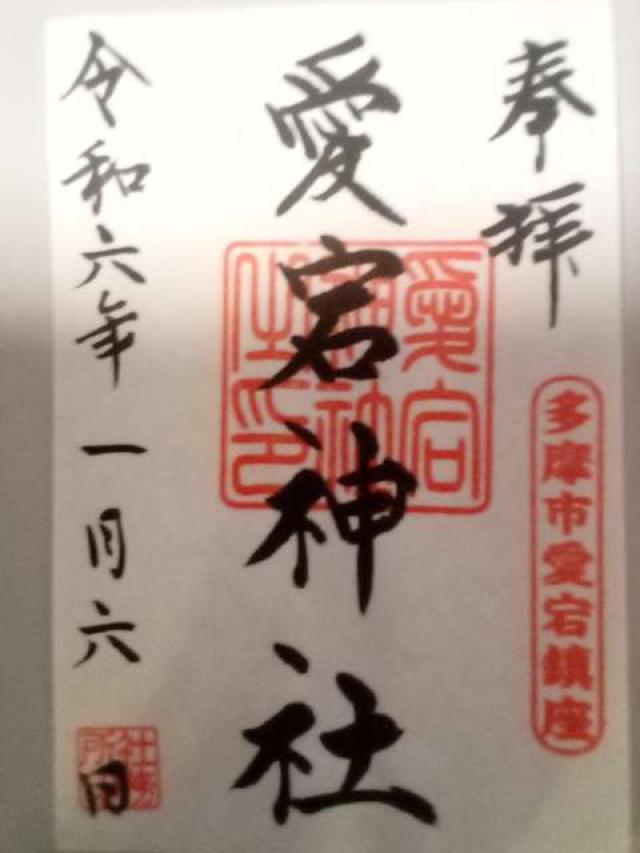 奉拝
多摩市愛宕鎮座
愛宕神社
愛宕神社之印
令和六年一月六日
社務所